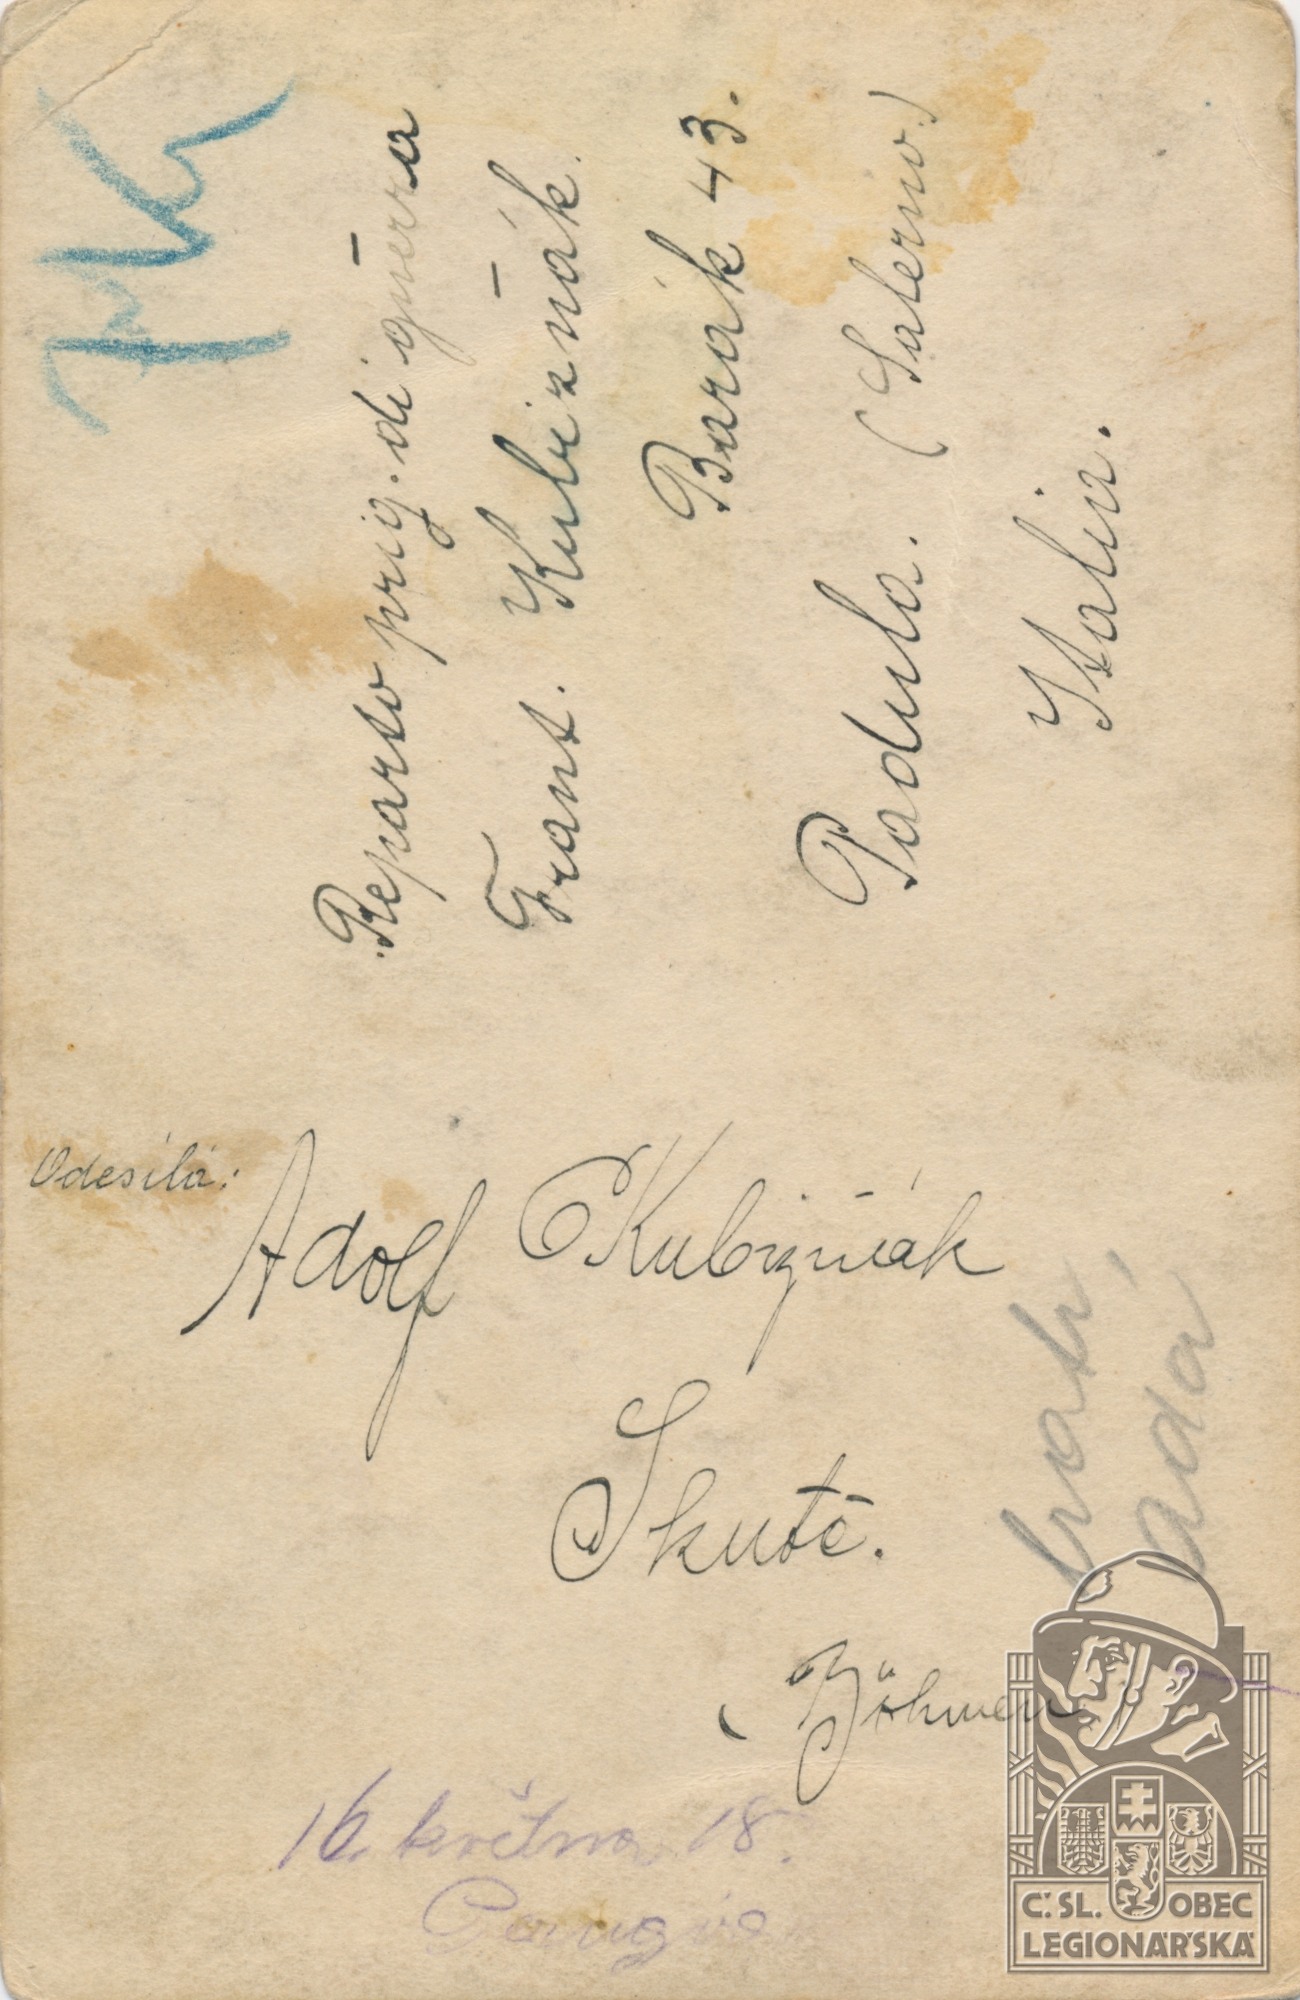 Reparto prig. di guerra
Frant. Kubizňák.
Barák 43.
Padula. (Salerno.)
Italia.
Odesílá:
Adolf Kubizňák
Skuteč.
Böhmen
16. května 18.
Perugia
C.SL. OBEC
LEGIONÁŘSKÁ